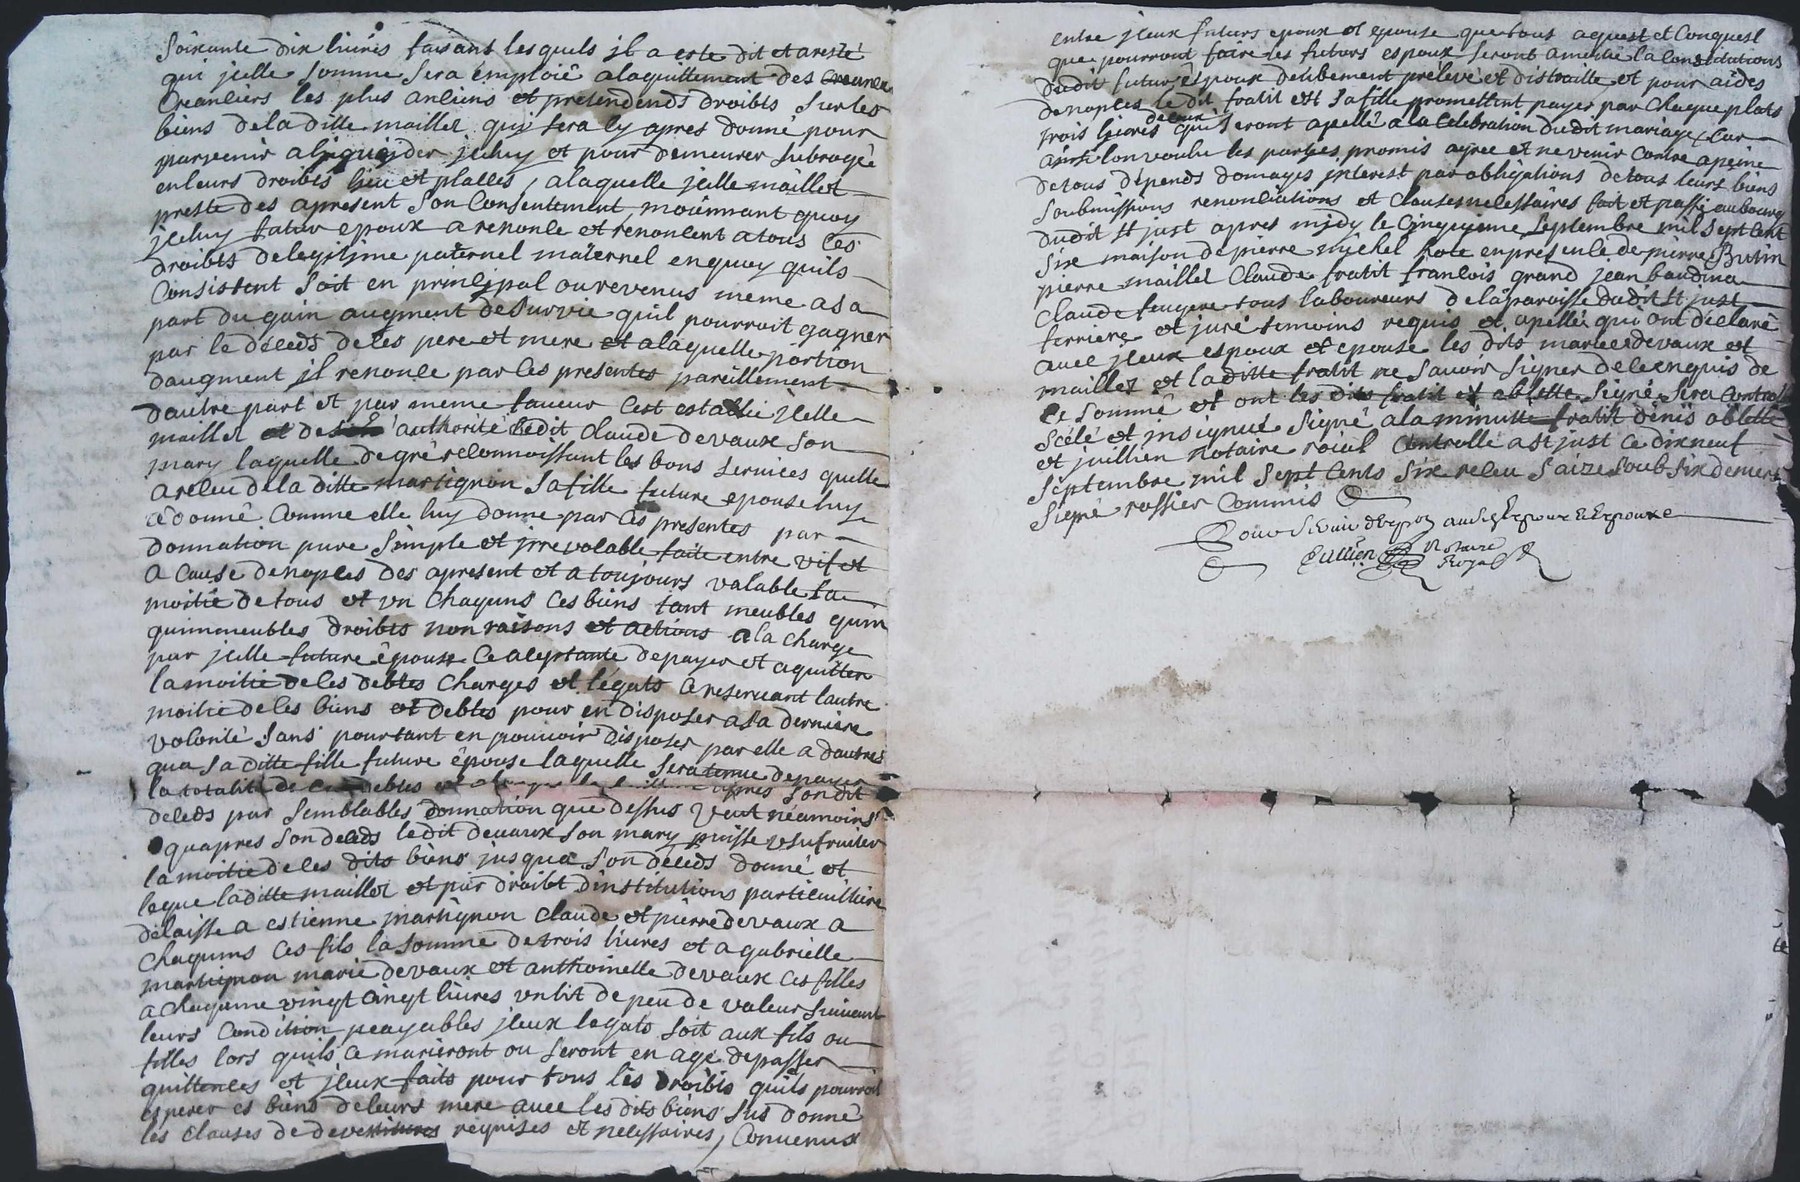 Soixante dix livres faisant lesquels jl a esté dit et aresté
qui jcelle somme sera emploié alaquittement des
Creantiers les plus antiens et pretendends droibts sur les
biens dela ditte maillet qui sera cy apres donné pour
parvenir a jceluy et pour demeurer subrogée
en leurs droibts lieu et plasses, alaquelle jcelle maillet
preste des apresent son Consentement moiennant quoy
jceluy futur epoux a renoncé et renoncent a tous ces
droibts de legitime paternel maternel en quoy quils
Consistent soit en principal ou revenus meme a sa
part du gain augment de survie quil pourroit gagner
par le deceds de ses pere et mere et a laquelle portion
daugment jl renonce par ces presentes pareillement
dautre part et par meme faveur cest establie jcelle
maillet et de authorité dudit Claude devaux son
mary laquelle de gré reconnoissant les bons services quelle
a receu dela ditte martignon sa fille future epouse luy
a donné Comme elle luy donne par ces presentes par
donnation pure simple et jrrevocable faite entre vif et
a cause de nopces des apresent et a toujours valable la
moitié de tous et un chaquns ces biens tant meubles
quimmeubles droibts nom raisons et actions a la charge
par jcelle future épouse ce aceptante de payer et aquitter
la moitié de ces debtes charges et légats ce reservant lautre
moitié de ces biens et debtes pour en disposer a sa derniere
volonté sans pourtant en pouvoir disposer par elle a dautres
qua sa ditte fille future épouse laquelle sera tenue de payer
la totalité de ces debtes et apres son dit
deceds par semblables donnation que dessus veut néamoins
quapres son deceds ledit devaux son mary puisse usufruiter
la moitié de ces dits biens jusqua son deceds donné et
legue laditte maillet et par droibt dinstitutions particuilliere
delaisse a estienne martignon Claude et pierre devaux a
chaquns ces fils la somme de trois livres et a gabrielle
martignon marie devaux et anthoinette devaux ces filles
a chaqune vingt Cinqt livres un lit de peu de valeur suivant
leurs Condition peayables jceux legats soit aux fils ou
filles lors quils ce marieront ou seront en age de passer
quittences et jceux faits pour tous les droibts quils pourroit
esperer es biens de leurs mere avec les dits biens sus donné
les clauses de devestitures requises et necessaires, Convenus
entre jceux futurs epoux et epouse que tous aquest et Conquest
que pourront faire les futurs espoux seront a moitié la Constitutions
dudit futur espoux delibement prélevé et distraitte et pour aides
de nopces ledit fratit et sa fille promettint payer par Chaque plats
trois livres deceux qui seront apellé a la Celebration dudit mariage, Car
ainsi lon voulu les parties promis agree et ne venir Contre a peine
de tous dépends domages jnterest par obligations de tous leurs biens
soubmissions renontiations et clauses necessaires fait et passé au bourg
dudit st just apres midy le Cinquieme septembre mil sept cent
six maison de pierre michel hote en presence de pierre Butin
pierre maillet Claude fratit francois grand jean baudina
Claude fougere tous laboureurs de la paroisse dudit st just
ferriere et juré temoins requis et apellé qui ont déclaré
avec jceux espoux et epouse les dits mariée devaux et
maillet et la ditte fratit ne savoir signer de ce enquis
et sommé et ont les dits fratit et oblette signé sera Controllé
scélé et insignué signé a la minutte fratit denis oblette
et juillien notaire roial Controllé a st just ce dixneuf
septembre mil sept cents six receu saize soub six deniers
signé rossier Commis
Pour servir d'expon audits Epoux et Epouse
Jullien Notaire
Royal